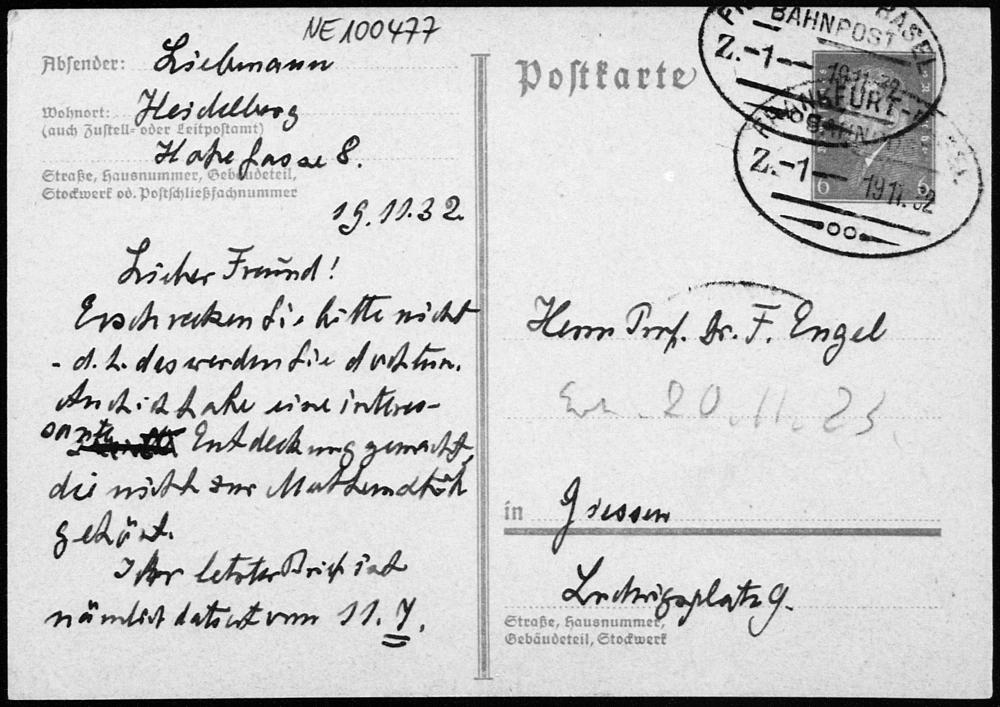 NE100477
Absender: Liebmann
Wohnort: Heidelberg
(auch Zustell- oder Leitpostamt)
8.
Straße, Hausnummer, Gebäudeteil,
Stockwerk od. Postschließfachnummer
19.11.32.
Lieber Freund!
Erschrecken Sie bitte nicht
- d.h. das werden Sie doch tun.
Auch ich habe eine interes-
sante Entdeckung gemacht,
die nicht zur Mathematik
gehört.
Ihr letzter Brief ist
nämlich datiert vom 11.7.
Postkarte
BAHNPOST BASEL
Z.-1
19.11.32
FRANKFURT-
BAHNPOST
Z.-1
19.11.32
6 6
Herrn Prof. Dr. F. Engel
20.11.
in Giessen
Ludwigsplatz 9.
Straße, Hausnummer,
Gebäudeteil, Stockwerk